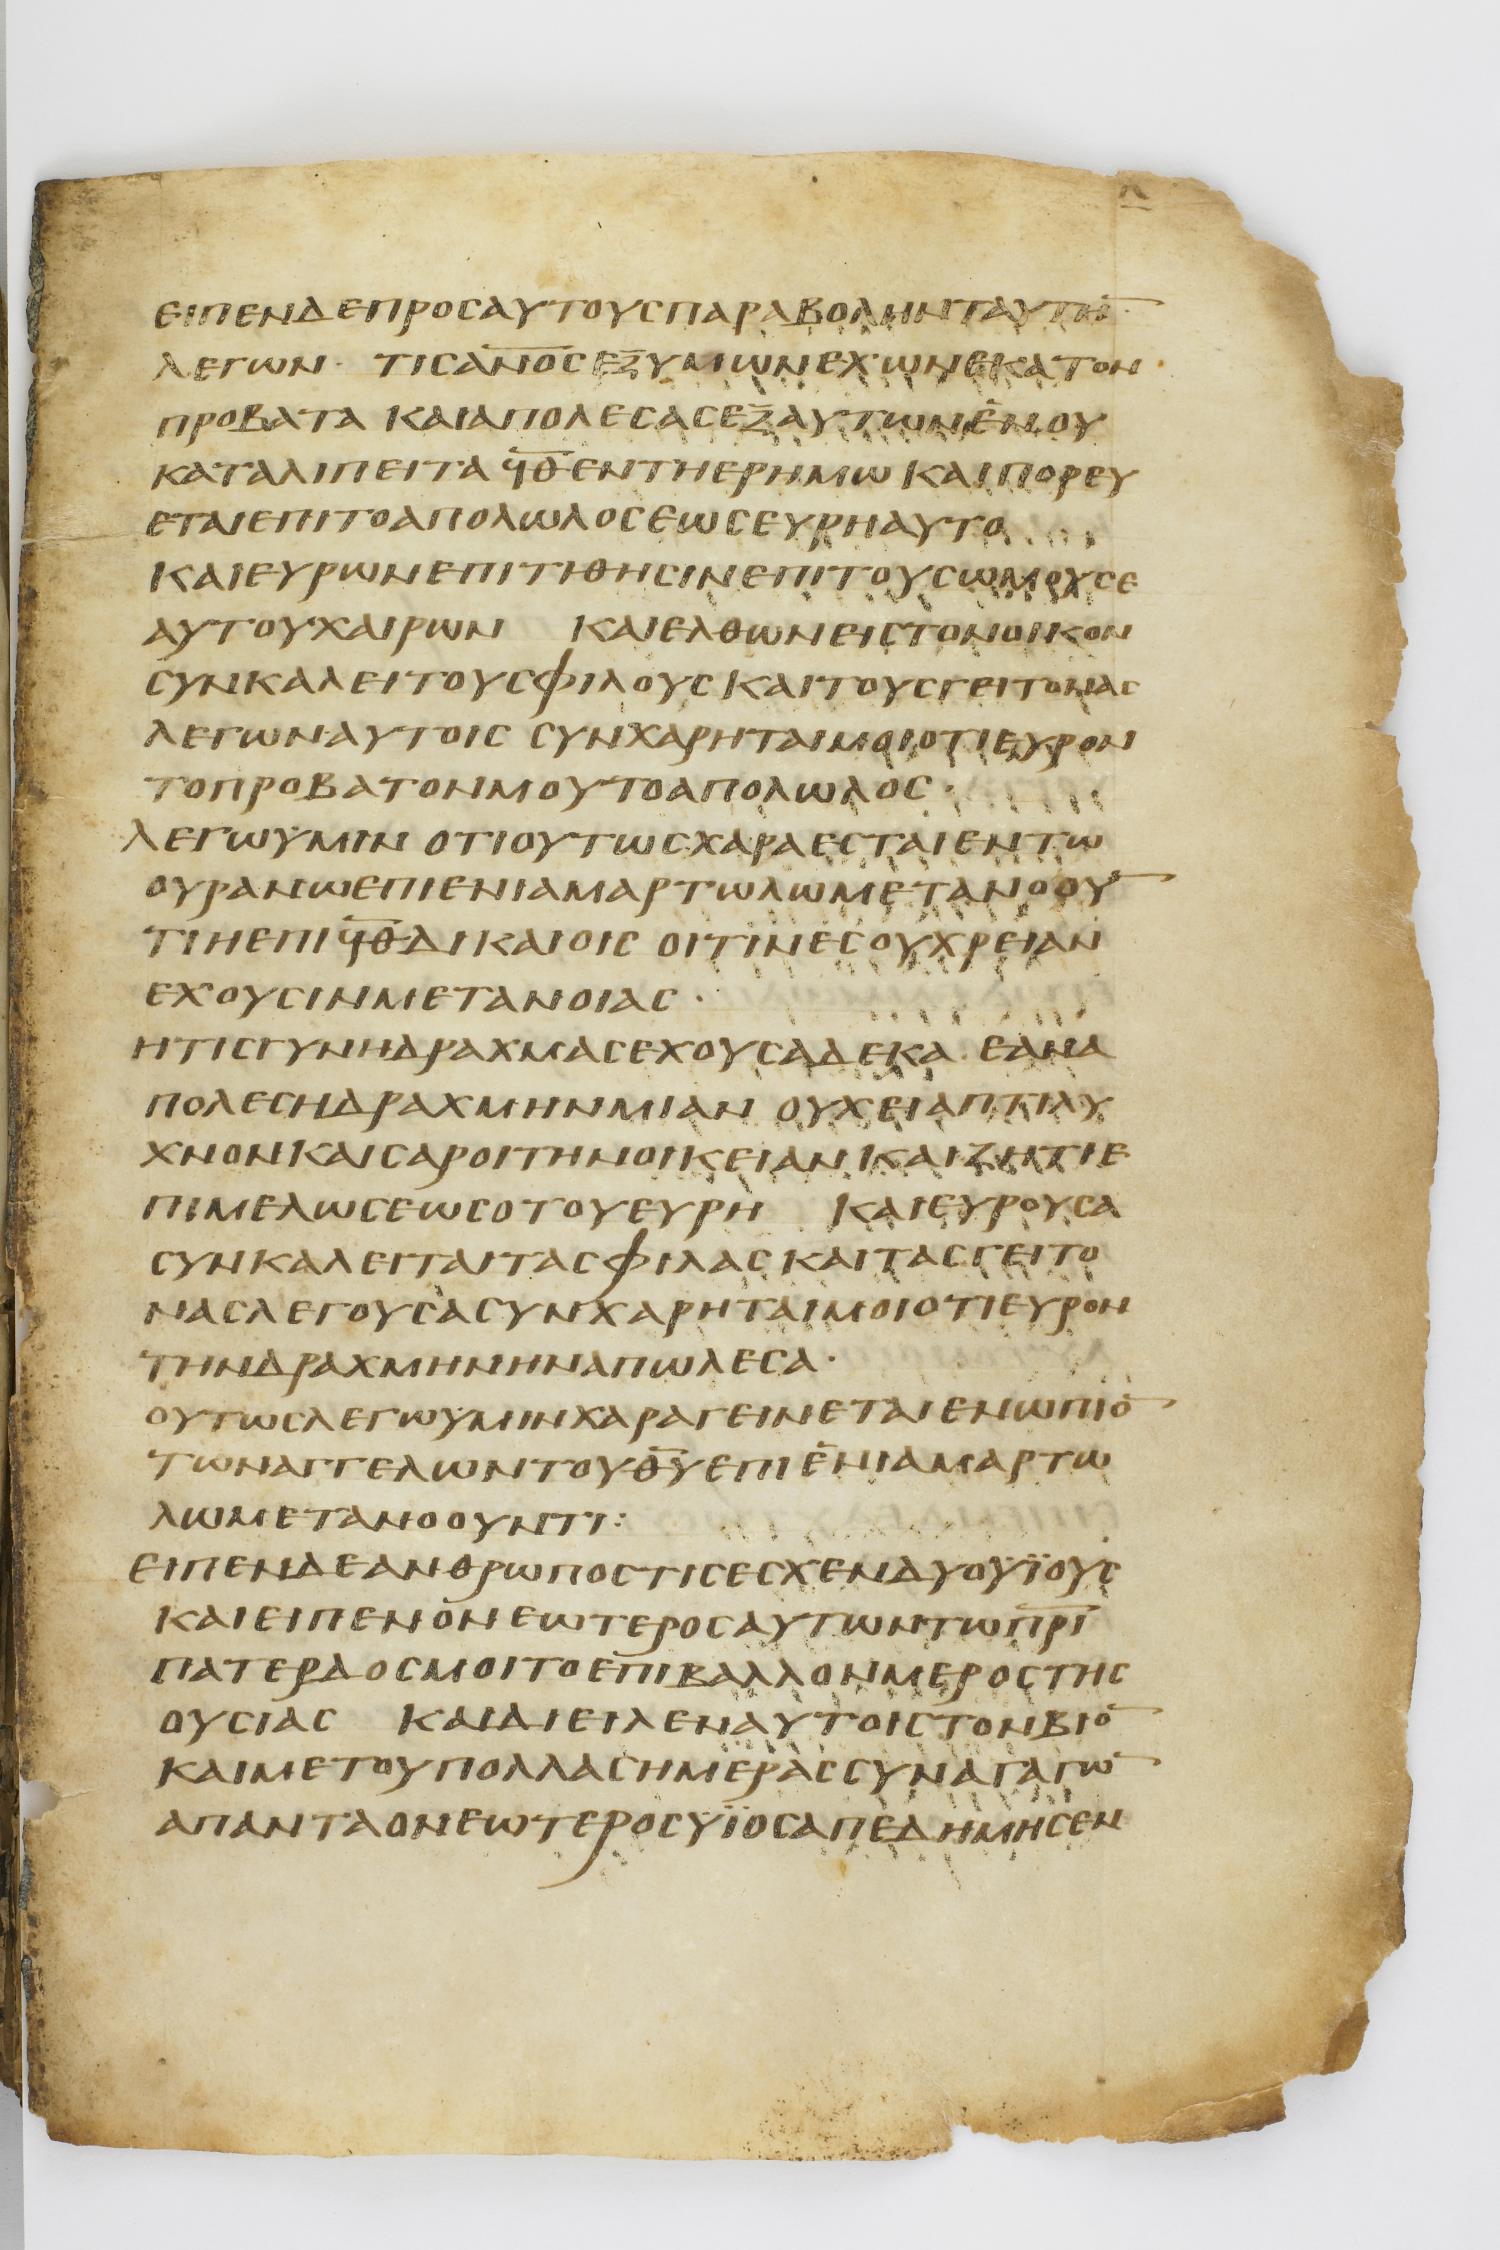 ΕΙΠΕΝΔΕΠΡΟΣΑΥΤΟΥΣΠΑΡΑΒΟΛΗΝΤΑΥΤΗ̅
ΛΕΓΩΝ· ΤΙΣΑ̅Ν̅Ο̅Σ̅ΕΞΥΜΩΝΕΧΩΝΕΚΑΤΟΝ
ΠΡΟΒΑΤΑ ΚΑΙΑΠΟΛΕΣΑΣΕΞΑΥΤΩΝΕΝΟΥ
ΚΑΤΑΛΙΠΕΙΤΑϤ̅Θ̅ΕΝΤΗΕΡΗΜΩ ΚΑΙΠΟΡΕΥ
ΕΤΑΙΕΠΙΤΟΑΠΟΛΩΛΟΣΕΩΣΕΥΡΗΑΥΤΟ
ΚΑΙΕΥΡΩΝΕΠΙΤΙΘΗΣΙΝΕΠΙΤΟΥΣΩΜΟΥΣΕ
ΑΥΤΟΥΧΑΙΡΩΝ ΚΑΙΕΛΘΩΝΕΙΣΤΟΝΟΙΚΟΝ
ΣΥΝΚΑΛΕΙΤΟΥΣΦΙΛΟΥΣΚΑΙΤΟΥΣΓΕΙΤΟΝΑΣ
ΛΕΓΩΝΑΥΤΟΙΣ ΣΥΝΧΑΡΗΤΑΙΜΟΙΟΤΙΕΥΡΟΝ
ΤΟΠΡΟΒΑΤΟΝΜΟΥΤΟΑΠΟΛΩΛΟΣ·
ΛΕΓΩΥΜΙΝ ΟΤΙΟΥΤΩΣΧΑΡΑΕΣΤΑΙΕΝΤΩ
ΟΥΡΑΝΩΕΠΙΕΝΙΑΜΑΡΤΩΛΩΜΕΤΑΝΟΟΥ̅
ΤΙΗΕΠΙϤ̅Θ̅ΔΙΚΑΙΟΙΣ ΟΙΤΙΝΕΣΟΥΧΡΕΙΑΝ
ΕΧΟΥΣΙΝΜΕΤΑΝΟΙΑΣ·
ΗΤΙΣΓΥΝΗΔΡΑΧΜΑΣΕΧΟΥΣΑΔΕΚΑ ΕΑΝΑ
ΠΟΛΕΣΗΔΡΑΧΜΗΝΜΙΑΝ ΟΥΧΕΙΑΠΤΙΛΥ
ΧΝΟΝΚΑΙΣΑΡΟΙΤΗΝΟΙΚΕΙΑΝΚΑΙΖΗΤΙΕ
ΠΙΜΕΛΩΣΕΩΣΟΤΟΥΕΥΡΗ ΚΑΙΕΥΡΟΥΣΑ
ΣΥΝΚΑΛΕΙΤΑΙΤΑΣΦΙΛΑΣΚΑΙΤΑΣΓΕΙΤΟ
ΝΑΣΛΕΓΟΥΣΑΣΥΝΧΑΡΗΤΑΙΜΟΙΟΤΙΕΥΡΟΝ
ΤΗΝΔΡΑΧΜΗΝΗΝΑΠΩΛΕΣΑ·
ΟΥΤΩΣΛΕΓΩΥΜΙΝΧΑΡΑΓΕΙΝΕΤΑΙΕΝΩΠΙΟ̅
ΤΩΝΑΓΓΕΛΩΝΤΟΥΘ̅Υ̅ΕΠΙΕΝΙΑΜΑΡΤΩ
ΛΩΜΕΤΑΝΟΟΥΝΤΙ:
ΕΙΠΕΝΔΕΑΝΘΡΩΠΟΣΤΙΣΕΣΧΕΝΔΥΟΫΪΟΥΣ
ΚΑΙΕΙΠΕΝΟΝΕΩΤΕΡΟΣΑΥΤΩΝΤΩΠ̅Ρ̅Ι̅
ΠΑΤΕΡΔΟΣΜΟΙΤΟΕΠΙΒΑΛΛΟΝΜΕΡΟΣΤΗΣ
ΟΥΣΙΑΣ ΚΑΙΔΙΕΙΛΕΝΑΥΤΟΙΣΤΟΝΒΙΟ̅
ΚΑΙΜΕΤΟΥΠΟΛΛΑΣΗΜΕΡΑΣΣΥΝΑΓΑΓΩ̅
ΑΠΑΝΤΑΟΝΕΩΤΕΡΟΣΫΪΟΣΑΠΕΔΗΜΗΣΕΝ